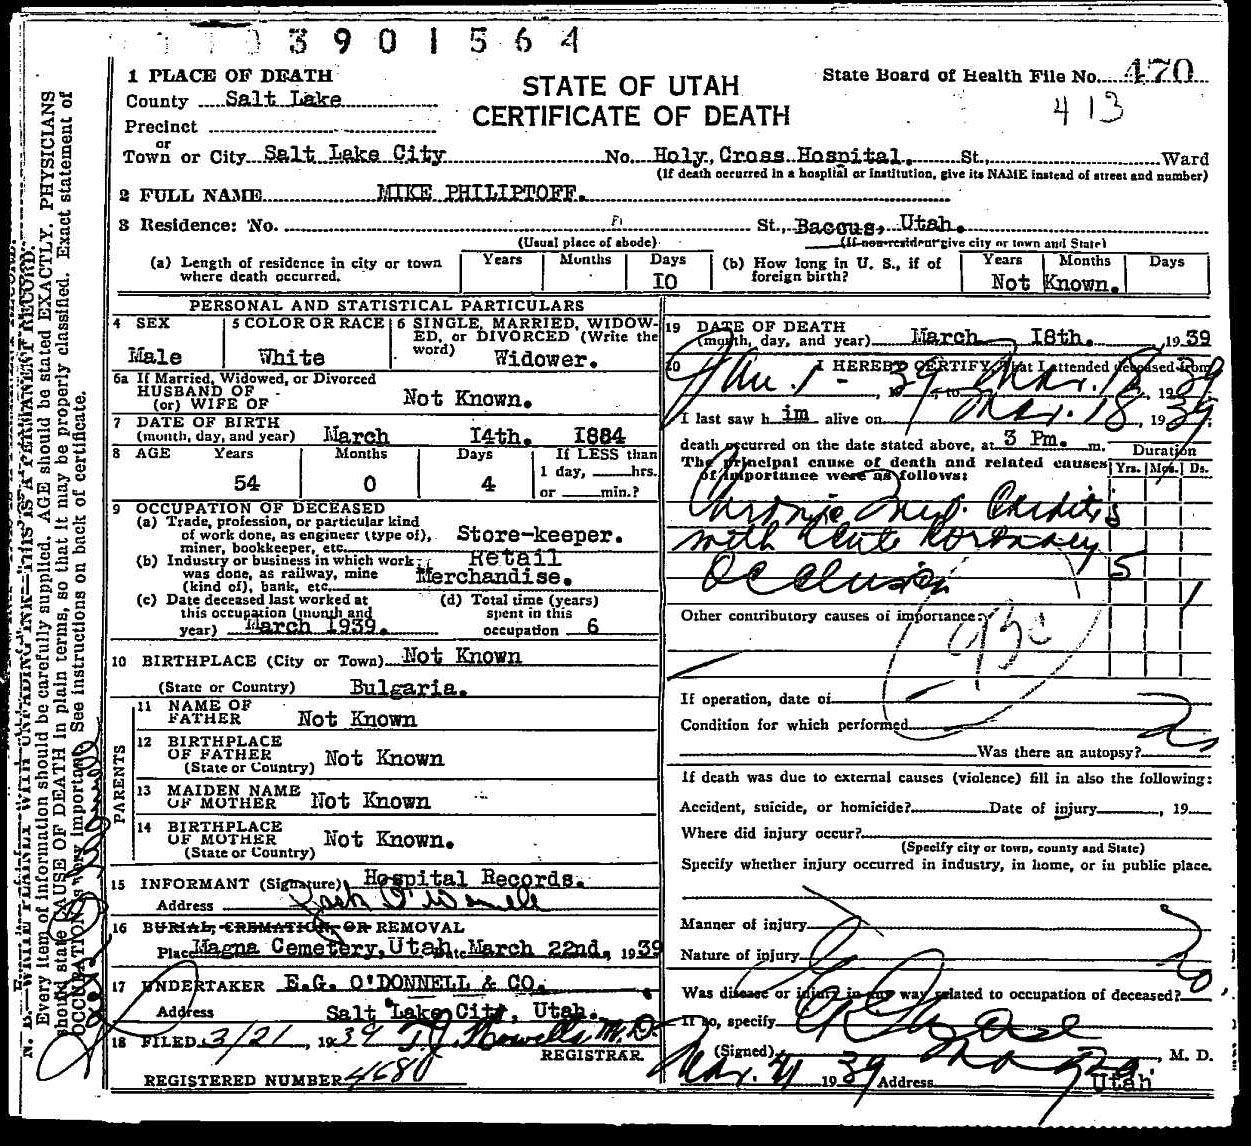 3901564
1 PLACE OF DEATH
STATE OF UTAH
CERTIFICATE OF DEATH
State Board of Health File No. 470
413
County Salt Lake
Precinct
or
Town or City Salt Lake City No. Holy Cross Hospital. St., Ward
(If death occurred in a hospital or institution, give its NAME instead of street and number)
2 FULL NAME MIKE PHILIPTOFF.
3 Residence: No. St., Baccus, Utah.
(Usual place of abode) (If non-resident give city or town and State)
(a) Length of residence in city or town where death occurred. Years Months Days 10
(b) How long in U. S., if of foreign birth? Years Months Days Not Known.
PERSONAL AND STATISTICAL PARTICULARS
4 SEX Male
5 COLOR OR RACE White
6 SINGLE, MARRIED, WIDOWED, or DIVORCED (Write the word) Widower.
6a If Married, Widowed, or Divorced
HUSBAND OF
(or) WIFE OF Not Known.
7 DATE OF BIRTH
(month, day, and year) March 14th. 1884
8 AGE Years Months Days If LESS than
1 day, hrs.
54 0 4 or min.?
9 OCCUPATION OF DECEASED
(a) Trade, profession, or particular kind
of work done, as engineer (type of),
miner, bookkeeper, etc. Store-keeper.
(b) Industry or business in which work
was done, as railway, mine
(kind of), bank, etc. Retail Merchandise.
(c) Date deceased last worked at
this occupation (month and
year) March 1939.
(d) Total time (years)
spent in this
occupation 6
10 BIRTHPLACE (City or Town) Not Known
(State or Country) Bulgaria.
PARENTS
11 NAME OF
FATHER Not Known
12 BIRTHPLACE
OF FATHER
(State or Country) Not Known
13 MAIDEN NAME
OF MOTHER Not Known
14 BIRTHPLACE
OF MOTHER
(State or Country) Not Known.
15 INFORMANT (Signature) Hospital Records.
Address Jack O'Donnell
16 BURIAL, CREMATION, OR REMOVAL
Place Magna Cemetery, Utah Date March 22nd, 1939
17 UNDERTAKER E.G. O'DONNELL & CO.
Address Salt Lake City, Utah.
18 FILED 3/21, 1939 T.J. Howells M.D.
REGISTRAR
REGISTERED NUMBER 4680
19 DATE OF DEATH
(month, day, and year) March 18th. , 1939
20 I HEREBY CERTIFY, that I attended deceased from
Jan. 1 - 39, to Mar. 18, 1939
I last saw him alive on Mar. 18, 1939.
death occurred on the date stated above, at 3 Pm. m.
The principal cause of death and related causes
of importance were as follows:
Duration
Yrs. Mos. Ds.
Chronic Myo Carditis
with Acute Coronary 5
Occlusion 1
Other contributory causes of importance:
If operation, date of
Condition for which performed
Was there an autopsy? No
If death was due to external causes (violence) fill in also the following:
Accident, suicide, or homicide? Date of injury , 19
Where did injury occur?
(Specify city or town, county and State)
Specify whether injury occurred in industry, in home, or in public place.
Manner of injury
Nature of injury
Was disease or injury in any way related to occupation of deceased? No
If so, specify
(Signed) , M. D.
Mar. 21 1939 Address Magna Utah
N. B.—WRITE PLAINLY WITH UNFADING INK—THIS IS A PERMANENT RECORD.
Every item of information should be carefully supplied. AGE should be stated EXACTLY. PHYSICIANS
should state CAUSE OF DEATH in plain terms, so that it may be properly classified. Exact statement of
OCCUPATION is very important. See instructions on back of certificate.